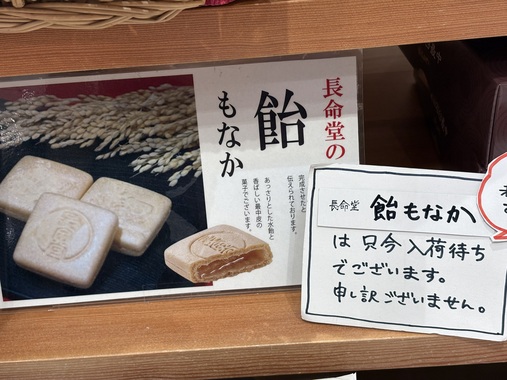 長命堂の
飴
もなか
完成させたと
伝えられております。
あっさりとした水飴と
香ばしい最中皮の
菓子でございます。
長命堂 飴もなか
は 只今 入荷待ち
でございます。
申し訳ございません。